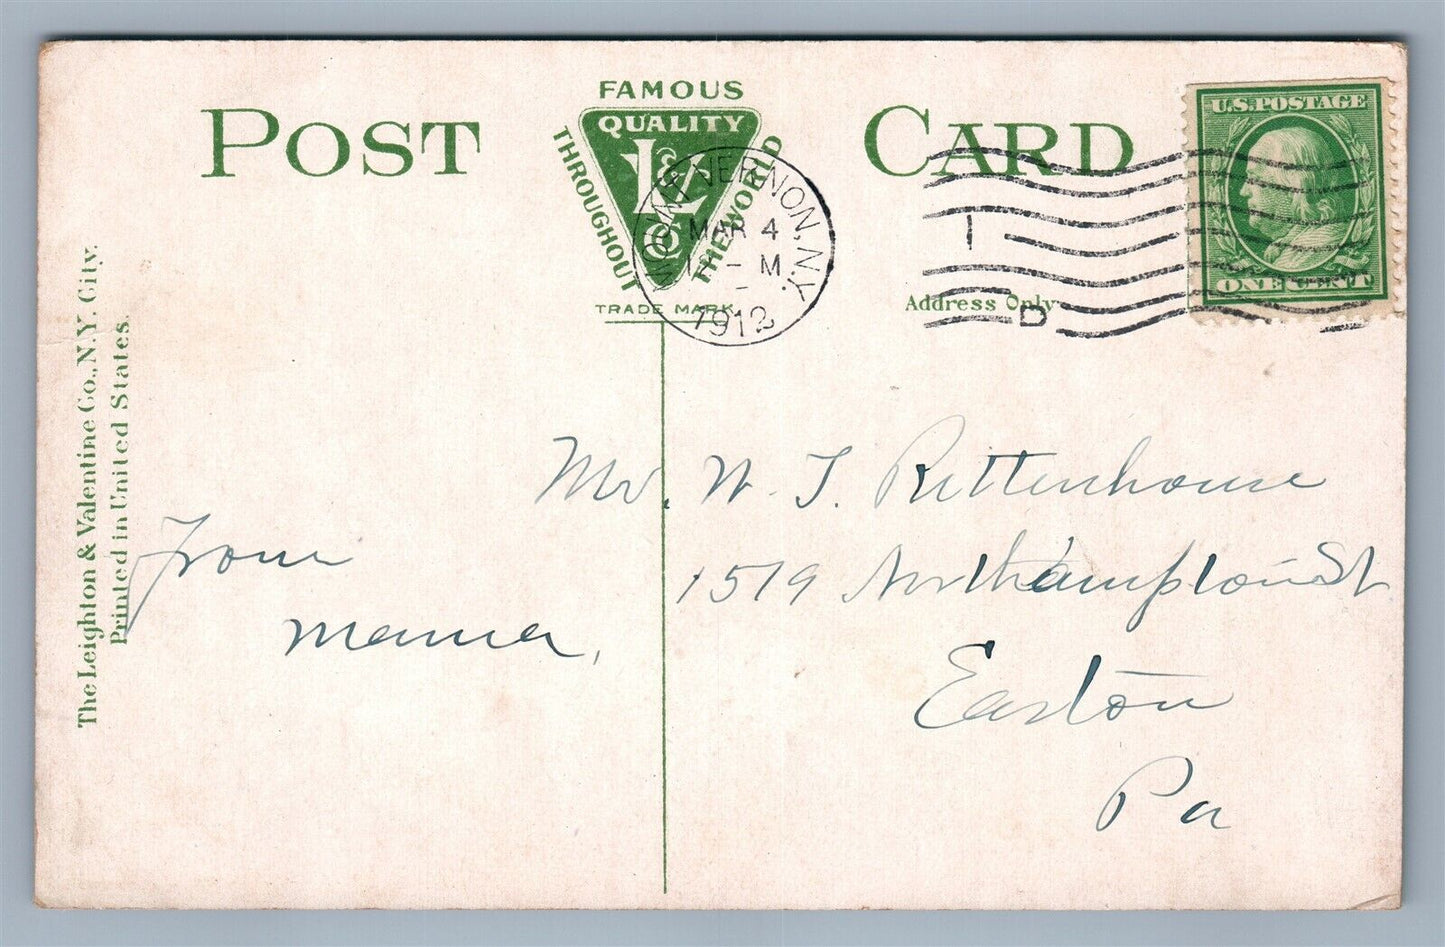 POST CARD
FAMOUS
QUALITY
L & V Co
THROUGHOUT THE WORLD
TRADE MARK
MOUNT VERNON, N.Y.
MAR 4
M
1912
1
D
U.S. POSTAGE
ONE CENT
Address Only
The Leighton & Valentine Co., N.Y. City.
Printed in United States.
From
Mama,
Mr. W. J. Rittenhouse
1519 Northampton St.
Easton
Pa